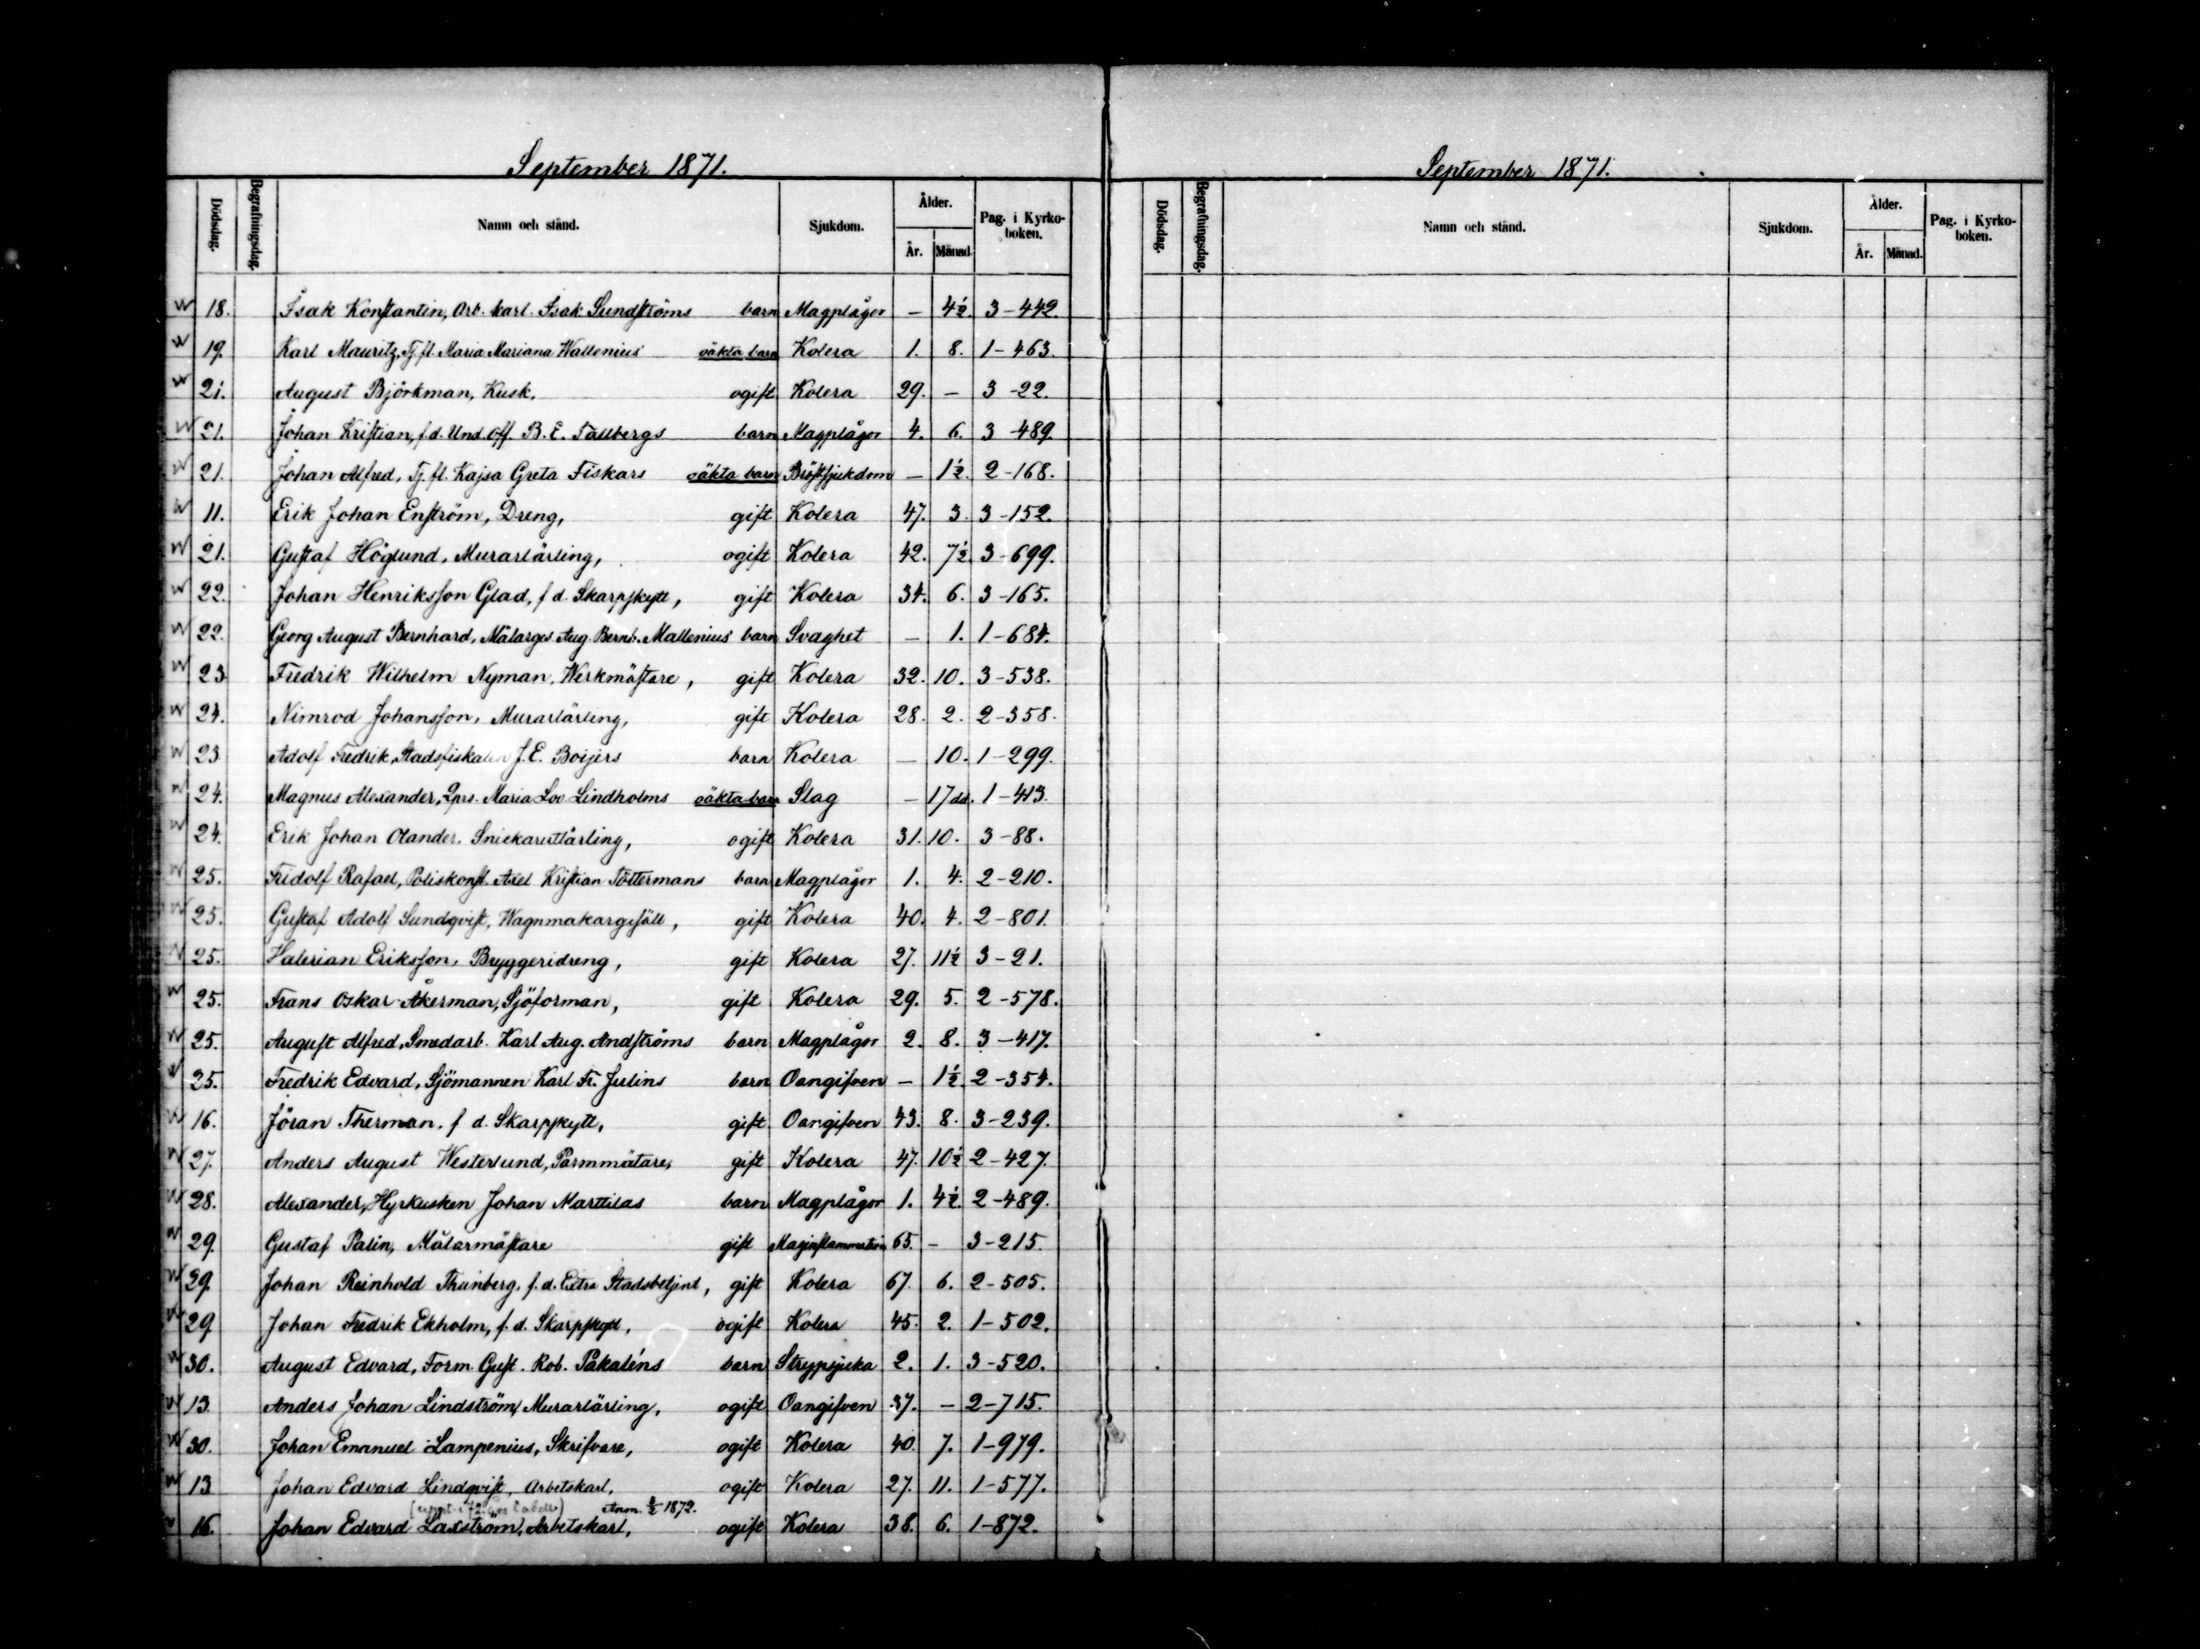 September 1871.
Dödsdag. Begrafningsdag. Namn och stånd. Sjukdom. Ålder. År. Månad. Pag. i Kyrkoboken.
W 18. Isak Konstantin, Arb. karl. Isak Sundströms barn Magplågor — 4½. 3-442.
W 19. Karl Mauritz, Tj. fl. Maria Mariana Wallenius oäkta barn Kolera 1. 8. 1-463.
W 21. August Björkman, Kusk, ogift Kolera 29. — 3-22.
W 21. Johan Kristian, f.d. Und. Off. B. E. Tallbergs barn Magplågor 4. 6. 3-489.
W 21. Johan Alfred, Tj. fl. Kajsa Greta Fiskars oäkta barn Bröstsjukdom — 1½. 2-168.
W 11. Erik Johan Enström, Dreng, gift Kolera 47. 3. 3-152.
W 21. Gustaf Höglund, Murarlärling, ogift Kolera 42. 7½. 3-699.
W 22. Johan Henriksson Glad, f d. Skarpskytt, gift Kolera 34. 6. 3-165.
W 22. Georg August Bernhard, Målarges. Aug. Bernh. Mallenius' barn Svaghet — 1. 1-684.
W 23. Fredrik Wilhelm Nyman, Werkmästare, gift Kolera 32. 10. 3-538.
W 24. Nimrod Johansson, Murarlärling, gift Kolera 28. 2. 2-358.
W 23. Adolf Fredrik, Stadsfiskalen J. E. Boijers barn Kolera — 10. 1-299.
W 24. Magnus Alexander, Qprs. Maria Lov. Lindholms oäkta barn Slag — 17 dd. 1-413.
W 24. Erik Johan Olander, Snickarelärling, ogift Kolera 31. 10. 3-88.
W 25. Fridolf Rafael, Poliskonst. Axel Kristian Töttermans barn Magplågor 1. 4. 2-210.
W 25. Gustaf Adolf Sundqvist, Wagnmakargesäll, gift Kolera 40. 4. 2-801.
W 25. Valerian Eriksson, Bryggeridreng, gift Kolera 27. 11½ 3-21.
W 25. Frans Oskar Åkerman, Sjöforman, gift Kolera 29. 5. 2-578.
W 25. August Alfred, Smedarb. Karl Aug. Andströms barn Magplågor 2. 8. 3-417.
W 25. Fredrik Edvard, Sjömannen Karl Fr. Julins barn Oangifven — 1½. 2-354.
W 16. Jöran Therman, f d. Skarpskytt, gift Oangifven 43. 8. 3-239.
W 27. Anders August Westerlund, Parmmätare, gift Kolera 47. 10½ 2-427.
W 28. Alexander, Hyrkusken Johan Marttilas barn Magplågor 1. 4½. 2-489.
W 29. Gustaf Palin, Målarmästare gift Maginflammation 65. — 3-215.
W 29. Johan Reinhold Thunberg, f. d. Extra Stadsbetjent, gift Kolera 67. 6. 2-505.
W 29 Johan Fredrik Ekholm, f. d. Skarpskytt, ogift Kolera 45. 2. 1-502.
W 30. August Edvard, Form. Gust. Rob. Påkaléns barn Strypsjuka 2. 1. 3-520.
W 13. Anders Johan Lindström, Murarlärling, ogift Oangifven 37. — 2-715.
W 30. Johan Emanuel Lampenius, Skrifvare, ogift Kolera 40. 7. 1-979.
W 13 Johan Edvard Lindqvist, Arbetskarl, ogift Kolera 27. 11. 1-577.
Anm. 2/2 1872.
16. Johan Edvard Laxström, Arbetskarl, ogift Kolera 38. 6. 1-872.
September 1871.
Dödsdag. Begrafningsdag. Namn och stånd. Sjukdom. Ålder. År. Månad. Pag. i Kyrkoboken.